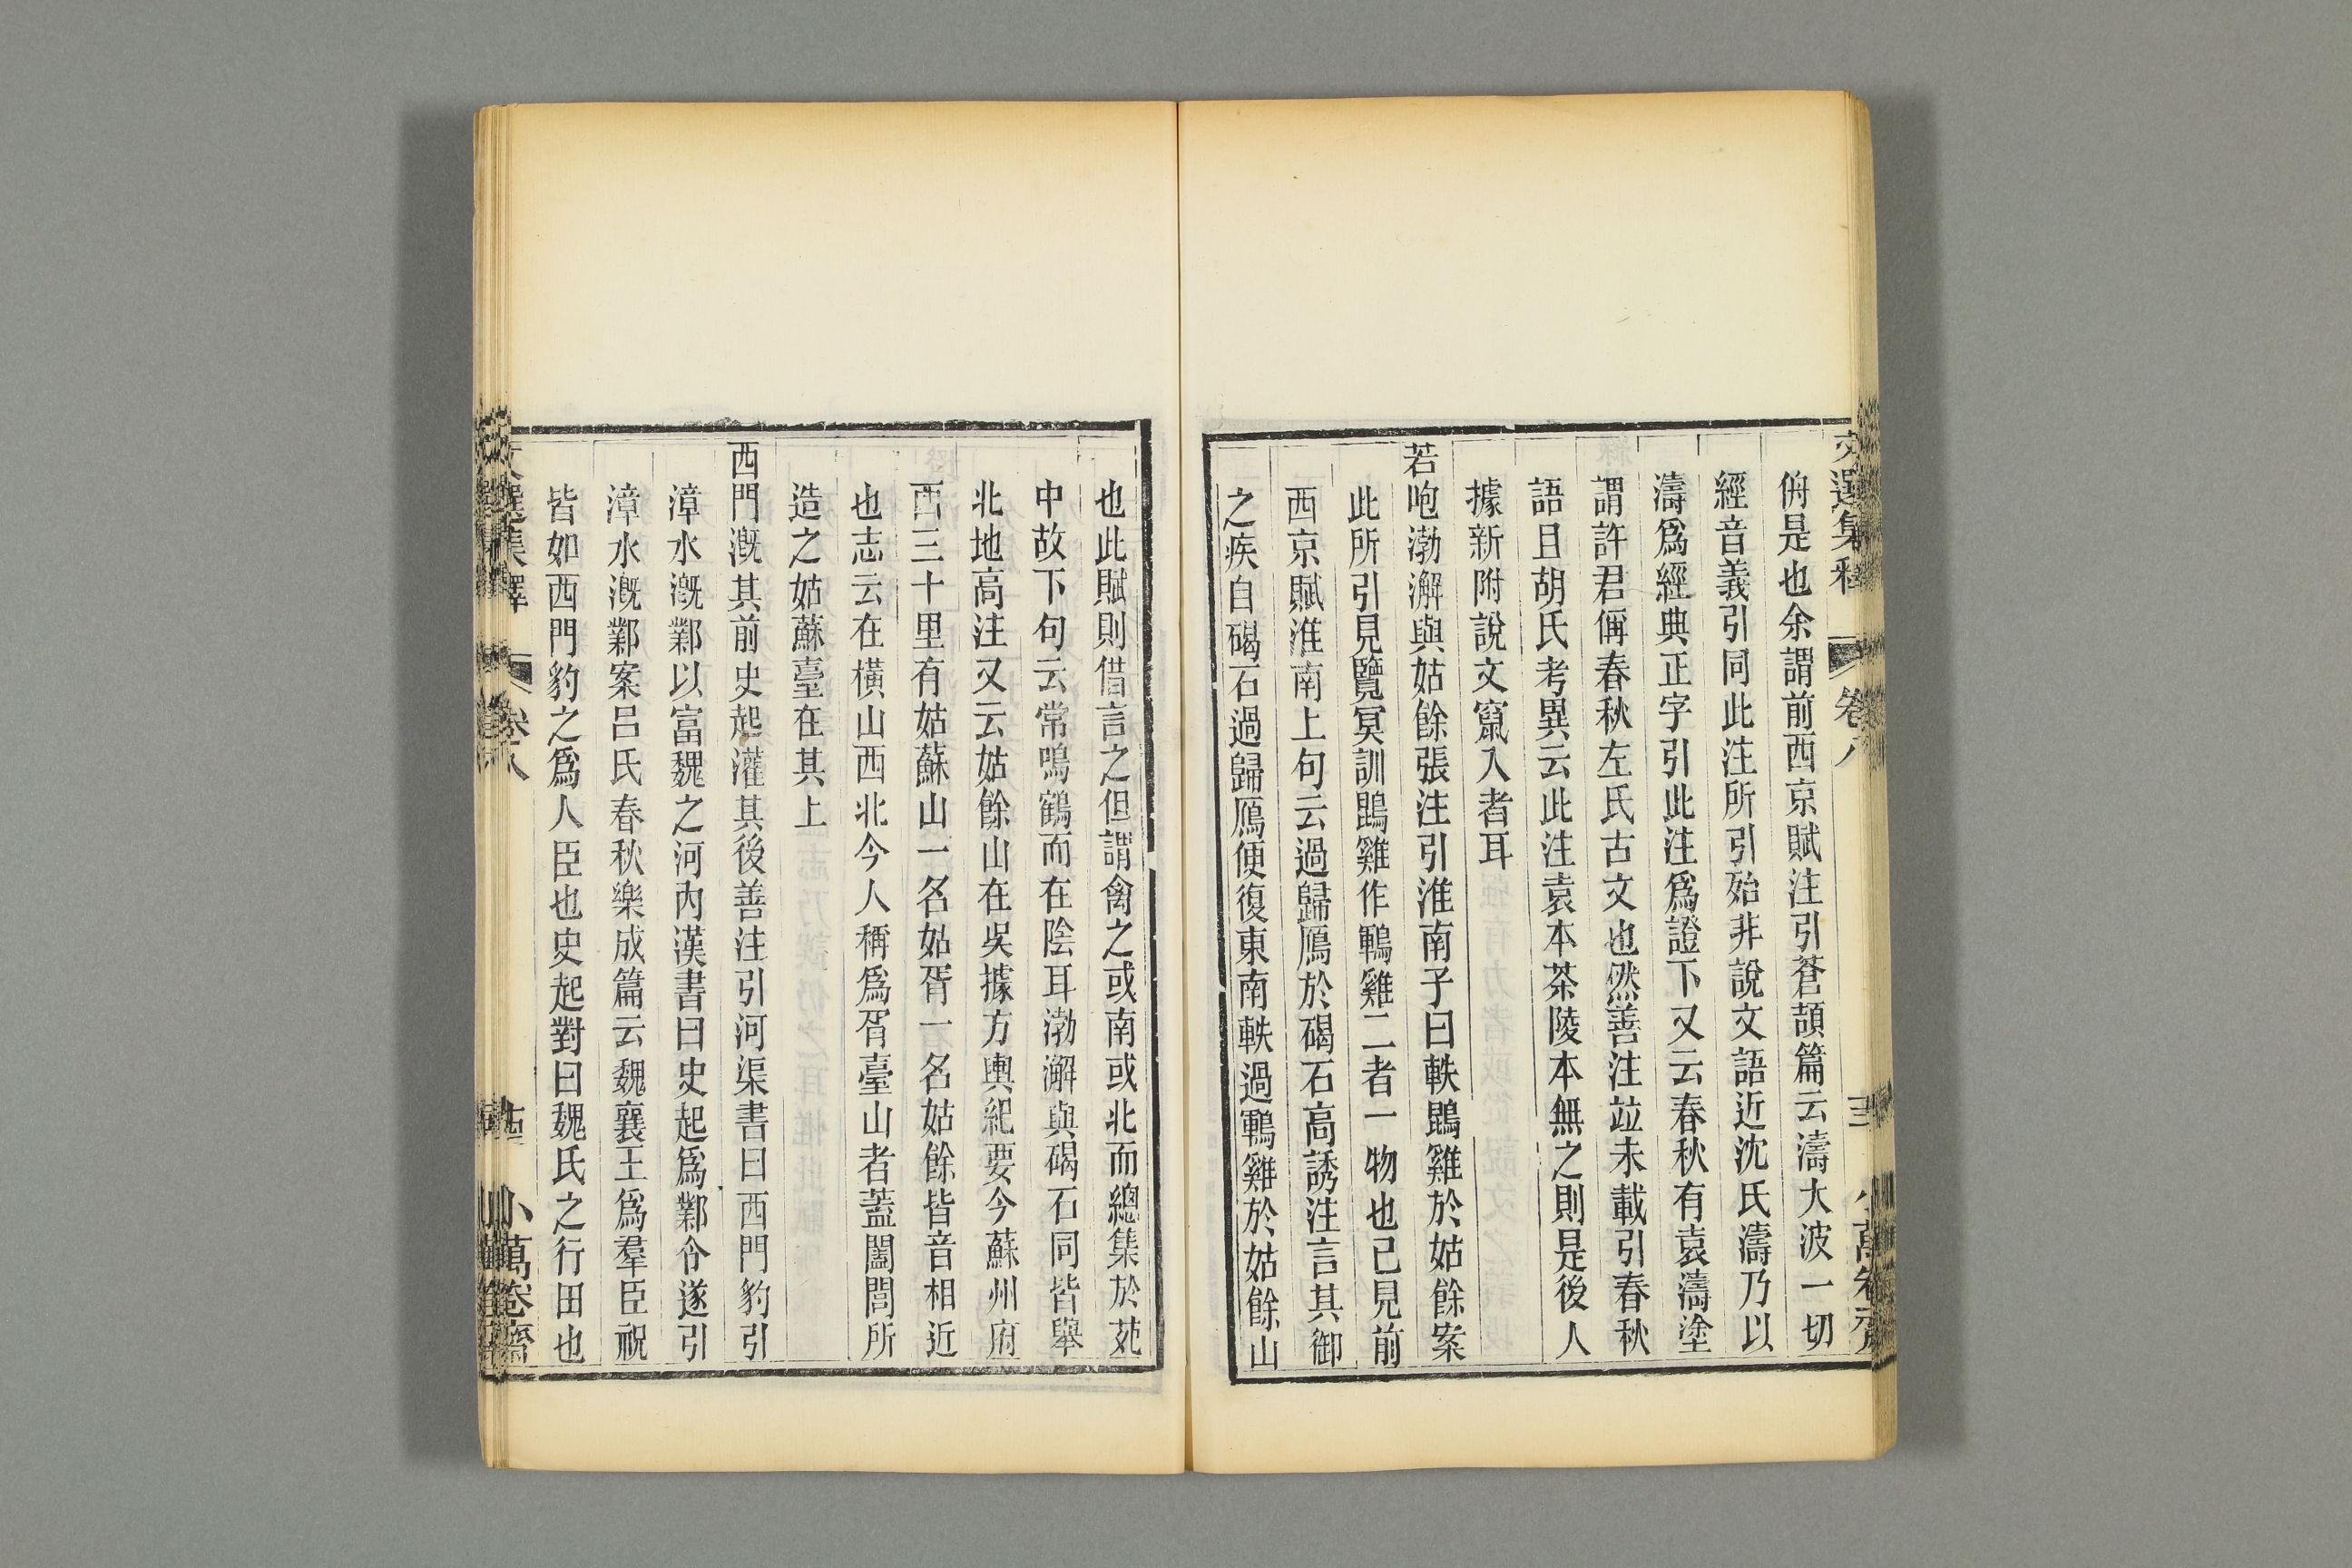 文選集釋 卷八 小萬卷齋
侜是也余謂前西京賦注引蒼頡篇云濤大波一切
經音義引同此注所引殆非說文語近沈氏濤乃以
濤爲經典正字引此注爲證下又云春秋有袁濤塗
謂許君偁春秋左氏古文也然善注竝未載引春秋
語且胡氏考異云此注袁本茶陵本無之則是後人
據新附說文竄入者耳
若咆渤澥與姑餘張注引淮南子曰軼鶤雞於姑餘案
此所引見覽冥訓鶤雞作鶤雞二者一物也已見前
西京賦淮南上句云過歸鴈於碣石高誘注言其御
之疾自碣石過歸鴈便復東南軼過鶤雞於姑餘山
也此賦則借言之但謂禽之或南或北而總集於苑
中故下句云常鳴鶴而在陰耳渤澥與碣石同皆舉
北地高注又云姑餘山在吳據方輿紀要今蘇州府
西三十里有姑蘇山一名姑胥一名姑餘皆音相近
也志云在橫山西北今人稱爲胥臺山者蓋闔閭所
造之姑蘇臺在其上
西門漑其前史起灌其後善注引河渠書曰西門豹引
漳水漑鄴以富魏之河內漢書曰史起爲鄴令遂引
漳水漑鄴案呂氏春秋樂成篇云魏襄王爲羣臣祝
皆如西門豹之爲人臣也史起對曰魏氏之行田也
文選集釋 卷八 小萬卷齋